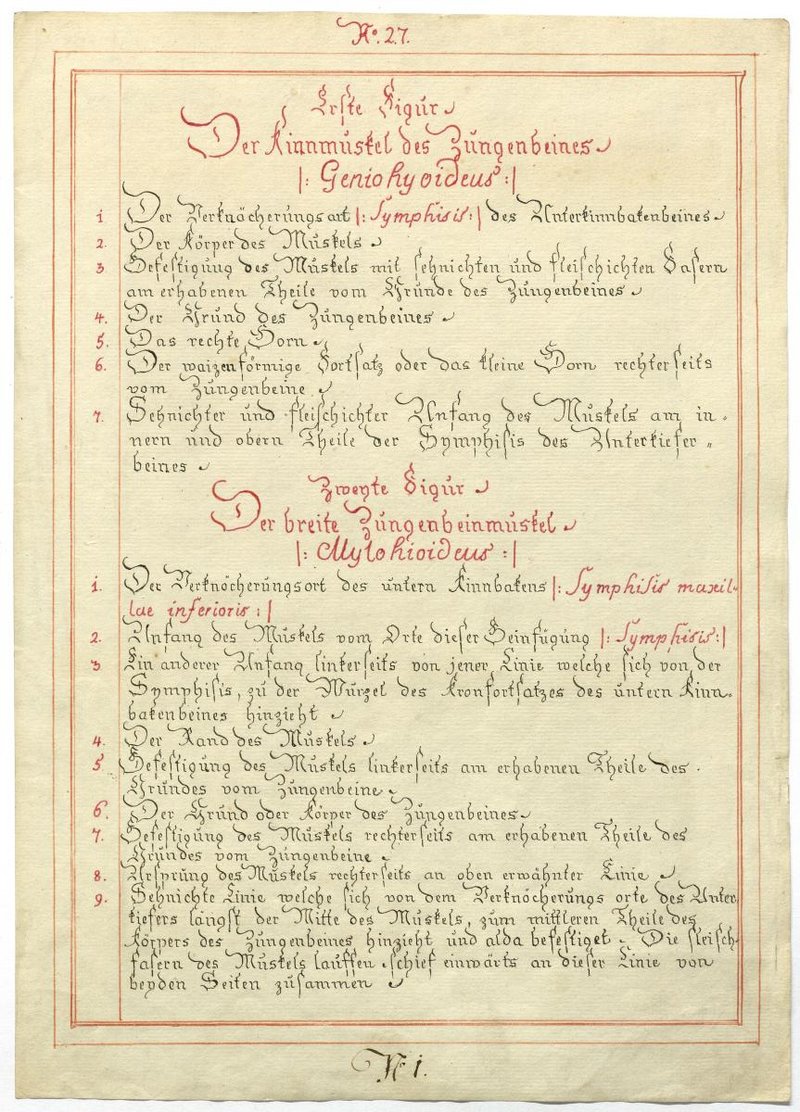 No. 27.
Erste Figur
Der Kinnmuskel des Zungenbeines
|: Geniohyoideus :|
1 Der Verknöcherungsart |: Symphisis :| des Unterkinnbakenbeines
2. Der Körper des Muskels
3 Befestigung des Muskels mit sehnichten und fleischichten Fasern
am erhabenen Theile vom Grunde des Zungenbeines
4. Der Grund des Zungenbeines
5. Das rechte Horn
6. Der waizenförmige Fortsatz oder das kleine Horn rechterseits
vom Zungenbeine
7. Sehnichter und fleischichter Anfang des Muskels am in-
nern und obern Theile der Symphisis des Unterkiefer-
beines
Zweyte Figur
Der breite Zungenbeinmuskel
|: Mylohioideus :|
1. Der Verknöcherungsort des untern Kinnbakens |: Symphisis maxil-
lae inferioris :|
2. Anfang des Muskels vom Orte dieser Beinfügung |: Symphisis :|
3 Ein anderer Anfang linkerseits von jener Linie welche sich von der
Symphisis, zu der Wurzel des Kronfortsatzes des untern Kinn-
bakenbeines hinzieht
4. Der Rand des Muskels
5 Befestigung des Muskels linkerseits am erhabenen Theile des
Grundes vom Zungenbeine
6. Der Grund oder Körper des Zungenbeines
7. Befestigung des Muskels rechterseits am erhabenen Theile des
Grundes vom Zungenbeine
8. Ursprung des Muskels rechterseits an oben erwähnter Linie
9. Sehnichte Linie welche sich von dem Verknöcherungs orte des Unter
kiefers längst der Mitte des Muskels, zum mittleren Theile des
Körpers des Zungenbeines hinzieht und alda befestiget. Die fleisch-
fasern des Muskels lauffen schief einwärts an dieser Linie von
beyden Seiten zusammen
No 1.